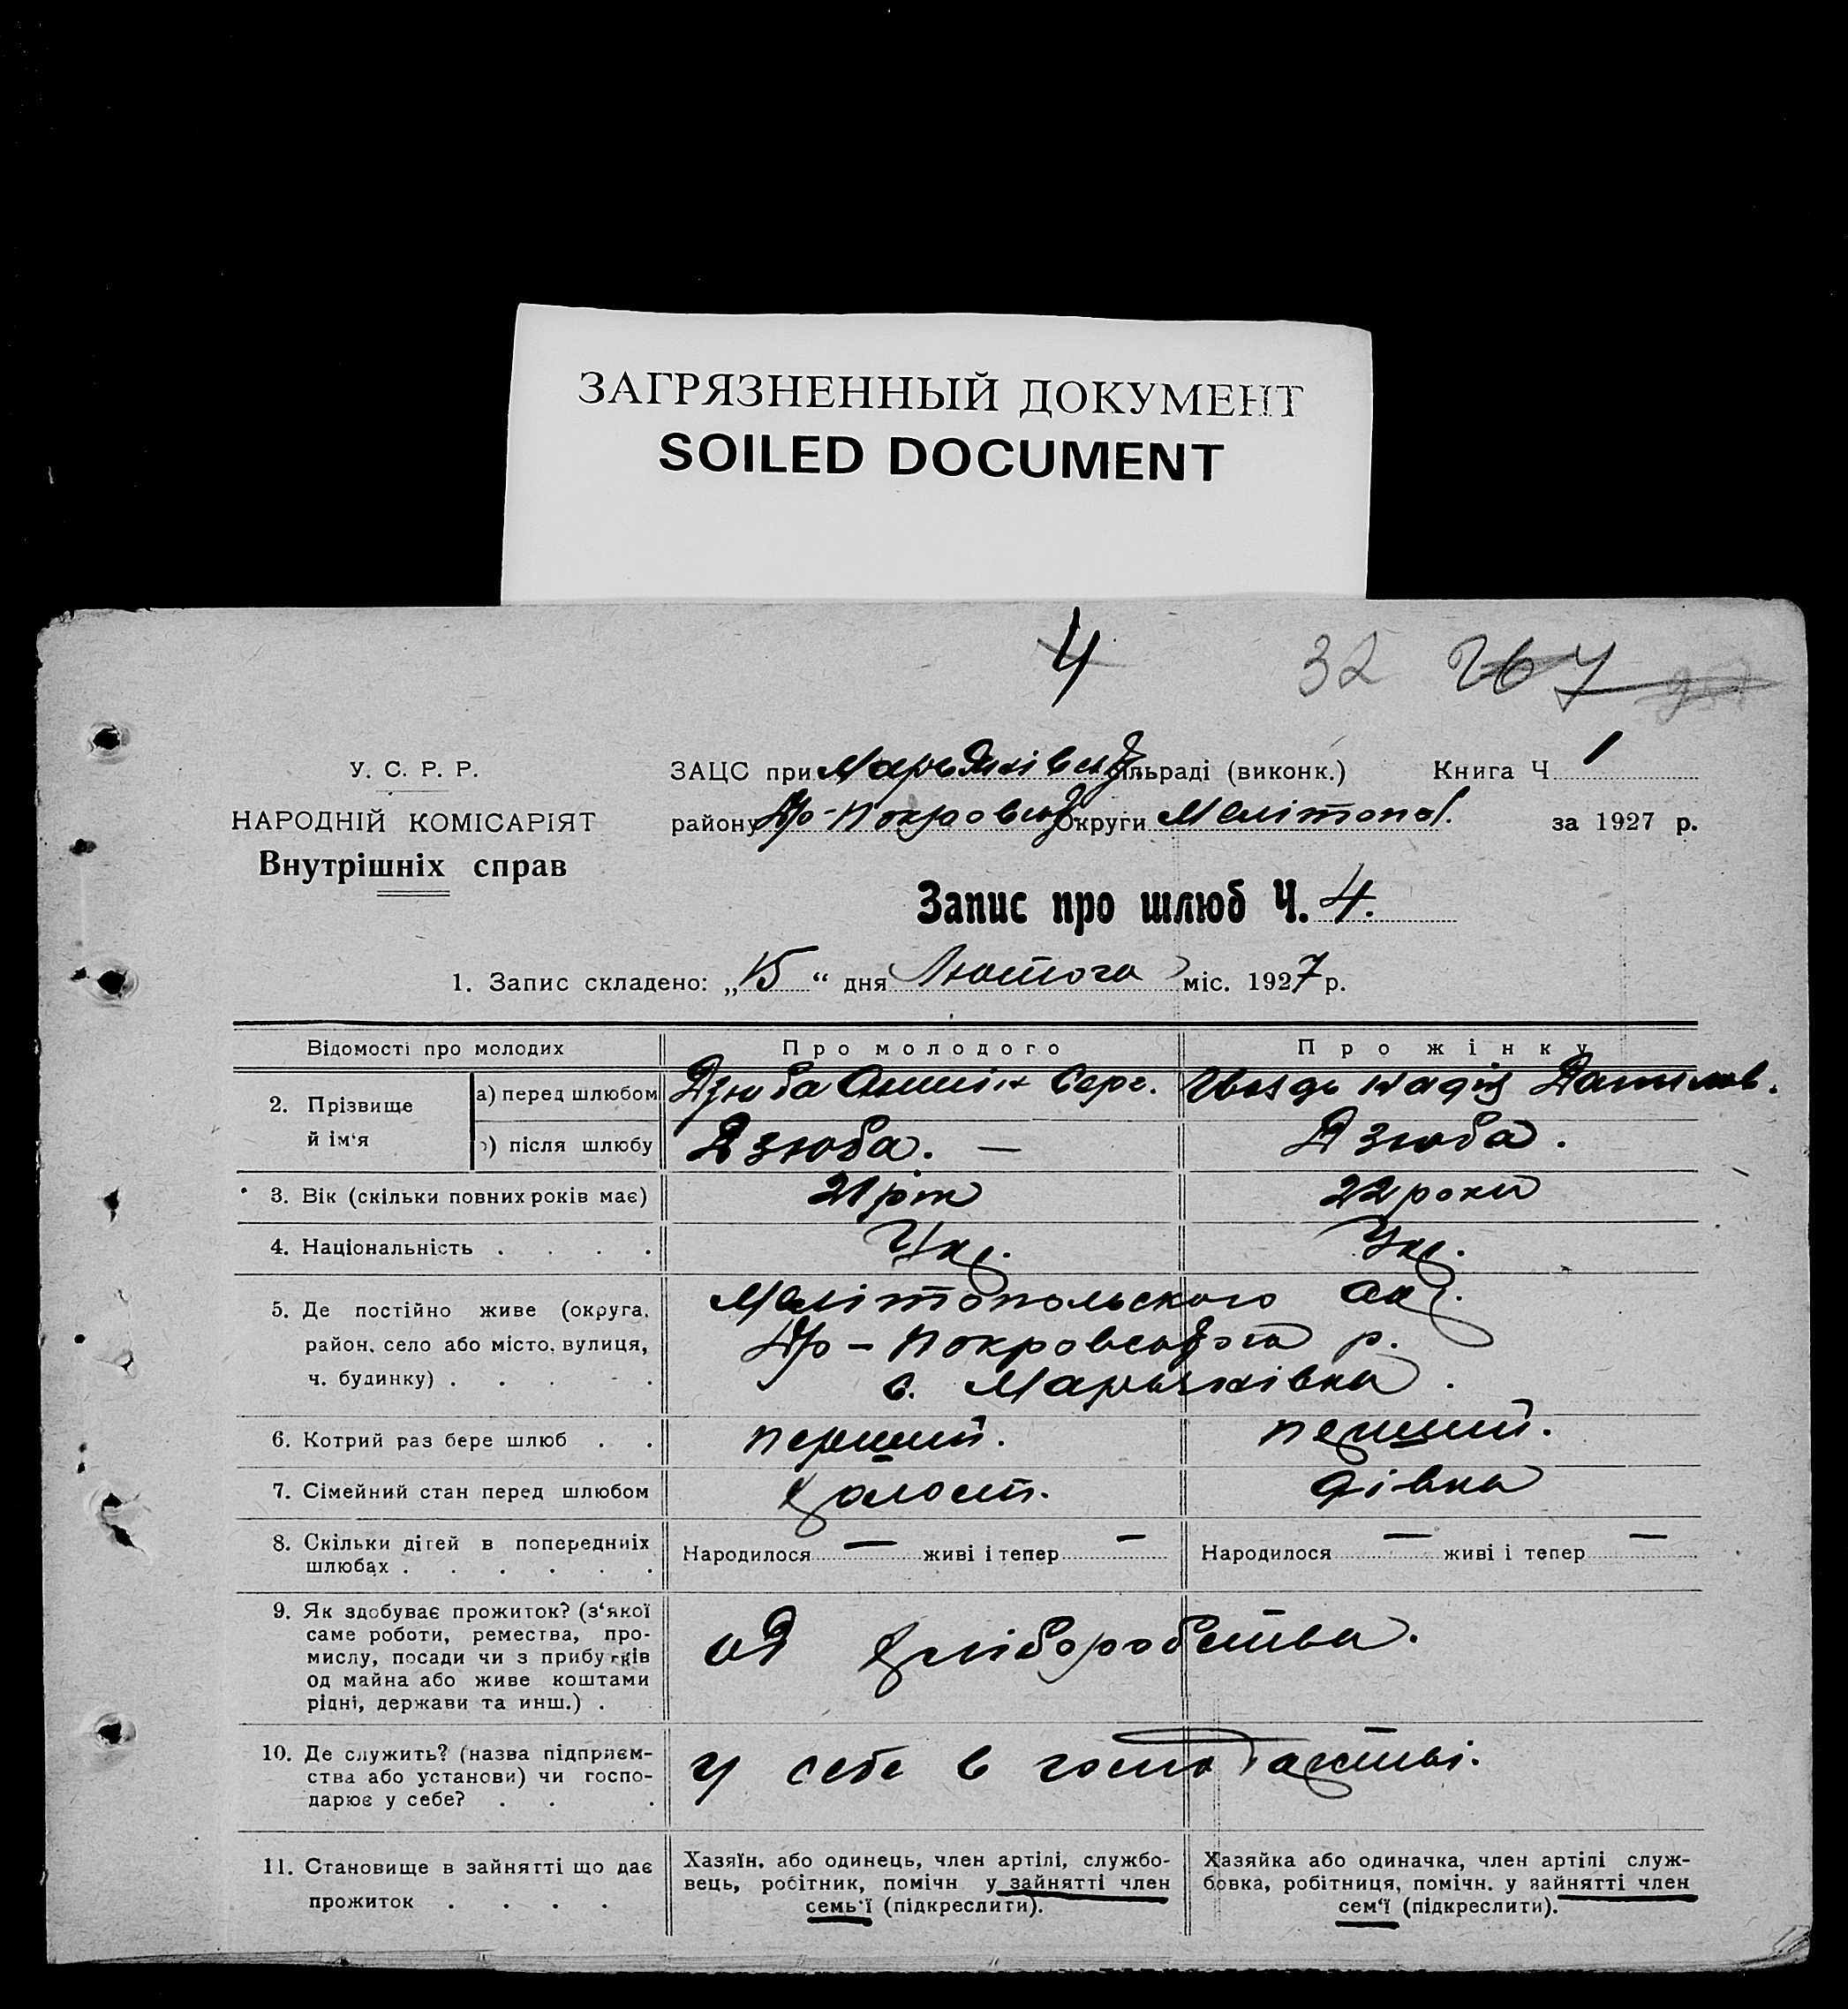 ЗАГРЯЗНЕННЫЙ ДОКУМЕНТ
SOILED DOCUMENT
4 32 267
У. С. Р. Р.
НАРОДНІЙ КОМІСАРІЯТ
Внутрішніх справ
ЗАЦС при Марьянівськ. сільраді (виконк.) Книга Ч 1
району Др-Покровськ округи Мелітопол. за 1927 р.
Запис про шлюб Ч. 4.
1. Запис складено: „15“ дня Лютого міс. 1927 р.
Відомості про молодих Про молодого Про жінку
2. Прізвище й ім‘я
а) перед шлюбом Дзюба Серг. Гвоздь Надія Данилов.
б) після шлюбу Дзюба. — Дзюба.
3. Вік (скільки повних років має) 21 рік 22 роки
4. Національність . . . . Укр. Укр.
5. Де постійно живе (округа, Мелітопольського окр.
район, село або місто, вулиця, Др-Покровського р.
ч. будинку) . . . - . с. Марьянівка.
6. Котрий раз бере шлюб . . перший. перший.
7. Сімейний стан перед шлюбом холост. дівка
8. Скільки дітей в попередніх Народилося — живі і тепер — Народилося — живі і тепер —
шлюбах . . . . . .
9. Як здобуває прожиток? (з‘якої
саме роботи, ремества, про-
мислу, посади чи з прибутків од хліборобства.
од майна або живе коштами
рідні, держави та инш.) .
10. Де служить? (назва підприєм-
ства або установи) чи госпо- у себе в господарстві.
дарює у себе? . . .
11. Становище в зайнятті що дає
прожиток . . . .
Хазяїн, або одинець, член артілі, службо-
вець, робітник, помічн. у зайнятті член
семь‘ї (підкреслити).
Хазяйка або одиначка, член артілі служ-
бовка, робітниця, помічн. у зайнятті член
сем‘ї (підкреслити).